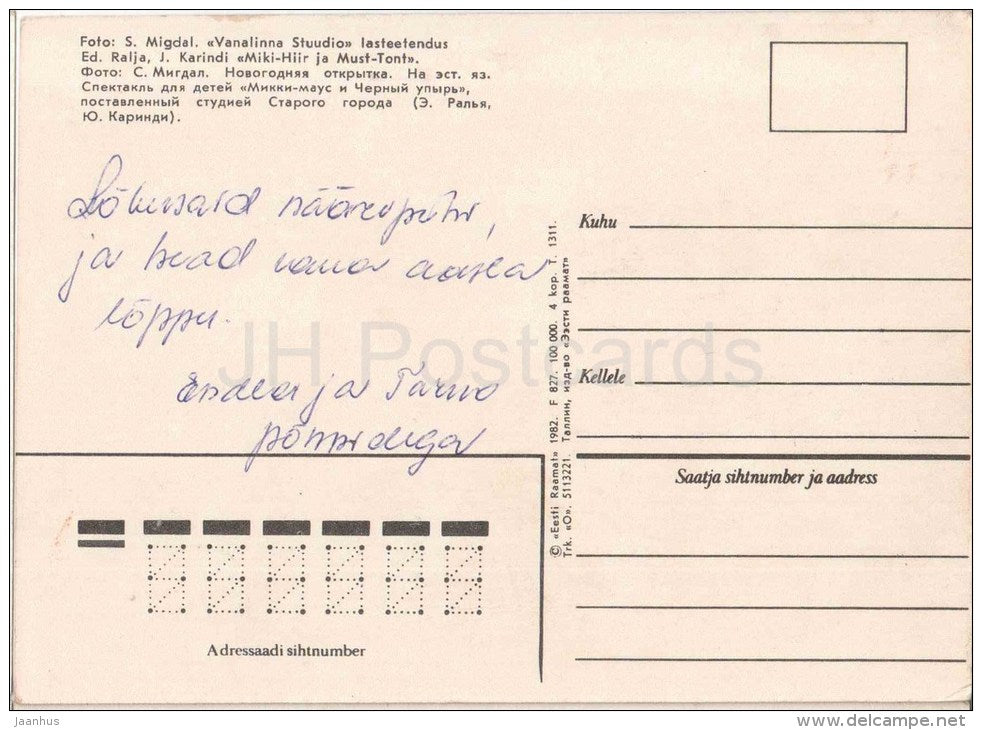 Foto: S. Migdal. «Vanalinna Stuudio» lasteetendus
Ed. Ralja, J. Karindi «Miki-Hiir ja Must-Tont».
Фото: С. Мигдал. Новогодняя открытка. На эст. яз.
Спектакль для детей «Микки-маус и Черный упырь»,
поставленный студией Старого города (Э. Ралья,
Ю. Каринди).
Lõbusaid nääripühi,
ja head vana aasta
lõppu.
ja Tarvo
põnnidega
© «Eesti Raamat» 1982. F 827. 100 000. 4 kop. T. 1311.
Trk. «O». 5113221. Таллин, изд-во «Ээсти раамат»
Kuhu
Kellele
Saatja sihtnumber ja aadress
Adressaadi sihtnumber
JH Postcards
Jaanhus
www.delcampe.net